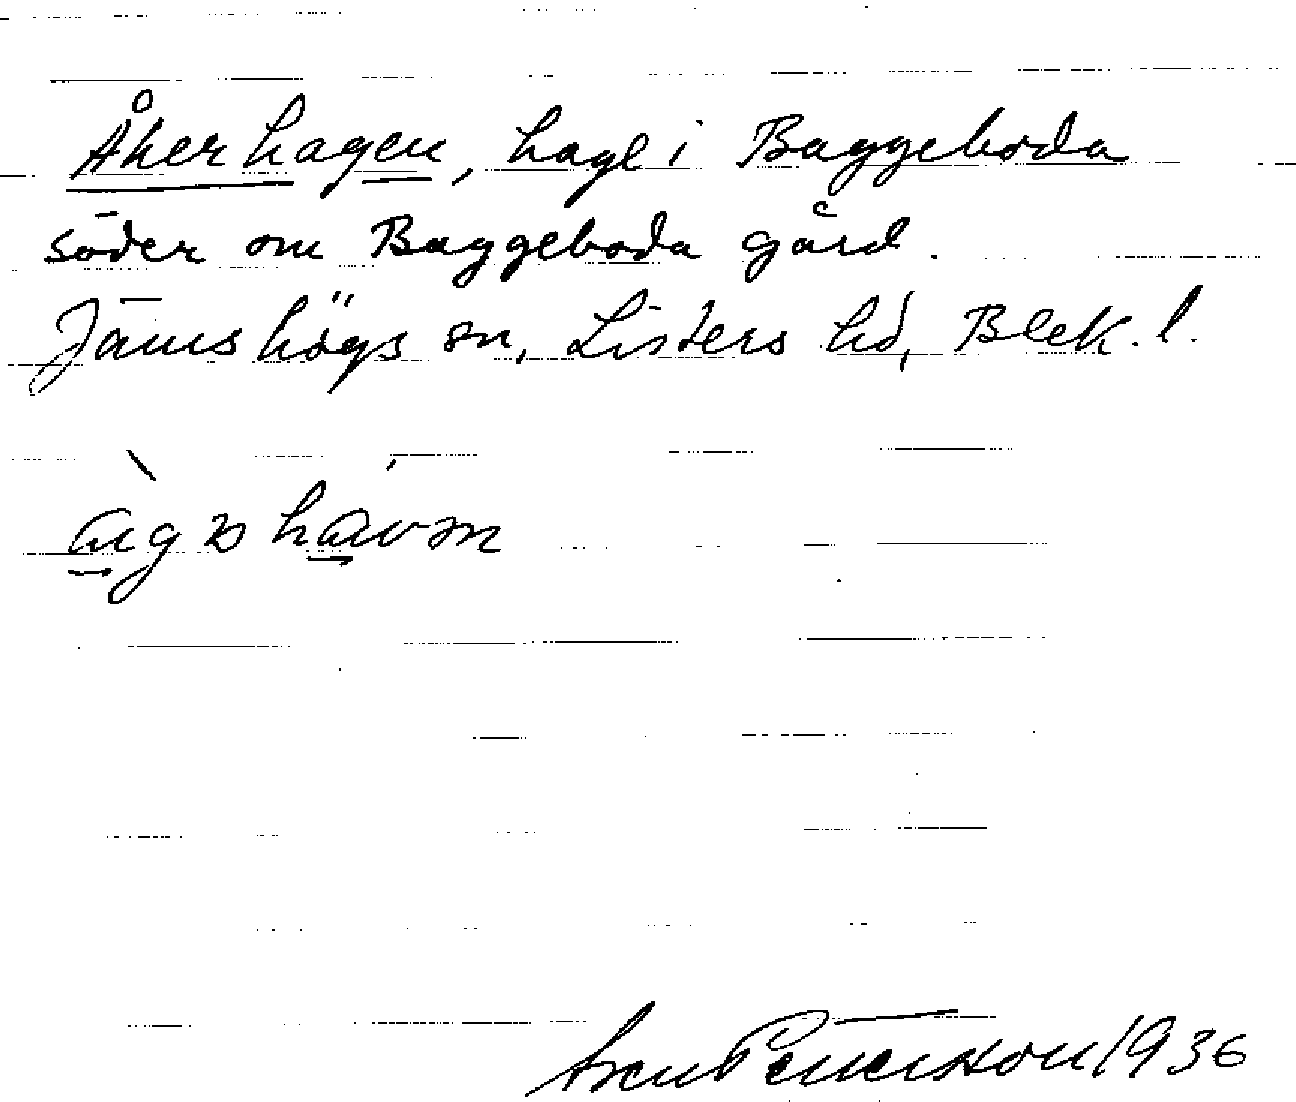 Åkerhagen, hage i Baggeboda
söder om Baggeboda gård.
Jämshögs sn, Listers hd, Blek. l.
1936